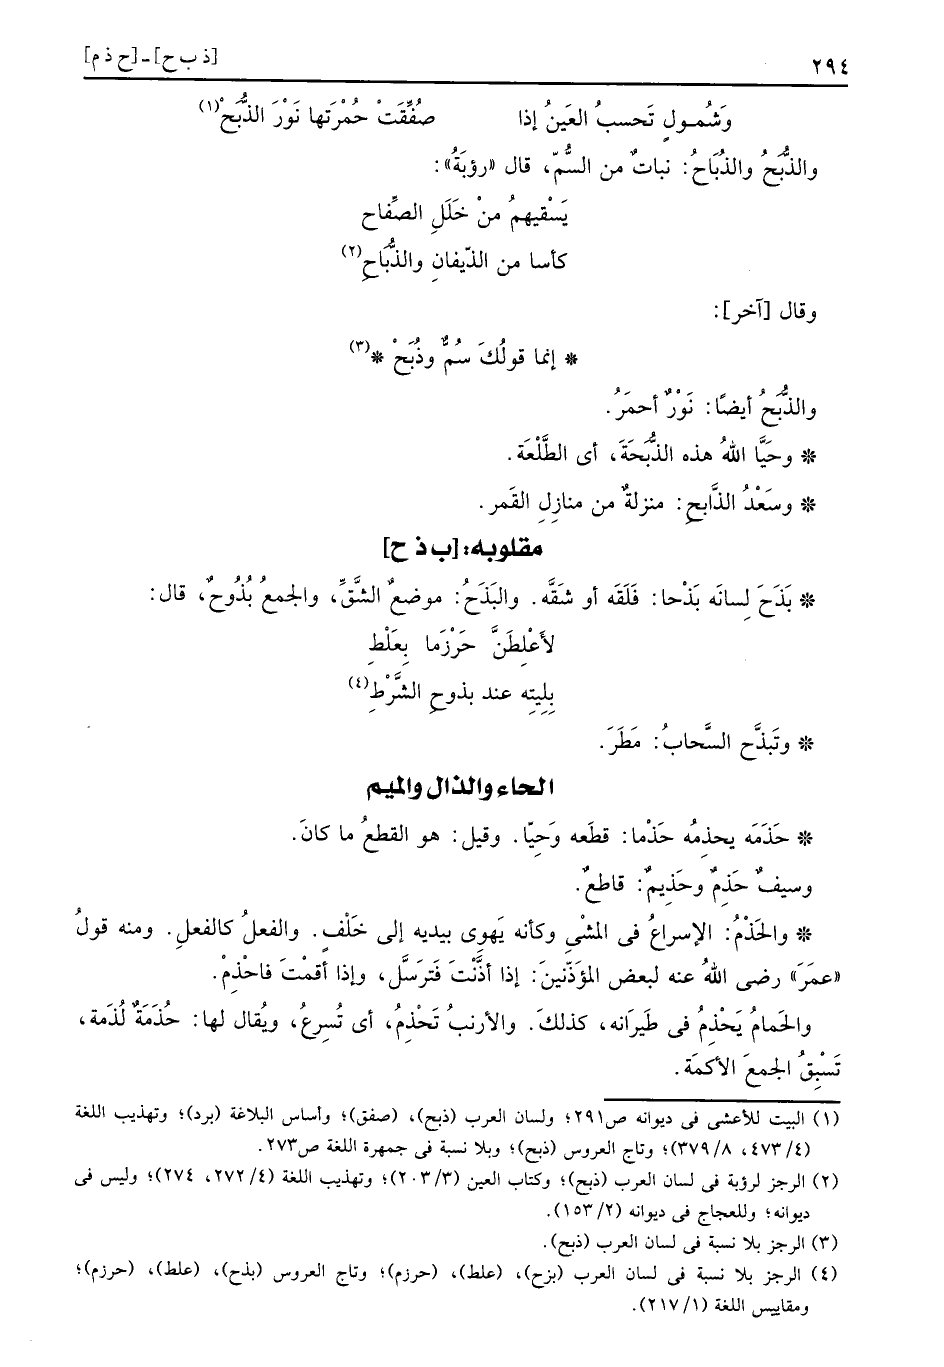 ٢٩٤ [ذ ب ح] ـ [ح ذ م]
وَشُمـولٍ تَحسبُ العَينُ إذا صُفِّقَتْ حُمْرَتها نَوْرَ الذُّبَحْ(١)
والذُّبَحُ والذُبَاحُ: نباتٌ من السُّمِّ، قال «رؤبَةُ»:
يَسْقيهمُ منْ خَلَلِ الصِّفاح
كأسا من الذّيفانِ والذُّبَاحِ(٢)
وقال [آخر]:
* إنما قولُكَ سُمٌّ وذُبَحْ *(٣)
والذُّبَحُ أيضًا: نَوْرٌ أحمَرُ.
* وحَيَّا اللهُ هذه الذُّبَحَةَ، أى الطَّلْعَة.
* وسَعْدُ الذَّابحِ: منزلةٌ من منازِلِ القَمر.
مقلوبه: [ب ذ ح]
* بَذَحَ لِسانَه بَذْحا: فَلَقَه أو شقَّه. والبَذَحُ: موضعٌ الشَّقِّ، والجمعُ بُذُوحٌ، قال:
لأَعْلِطَنَّ حَرْزَما بِعَلْطِ
بِلِيتِه عند بذوحِ الشَّرْطِ(٤)
* وتَبذَّح السَّحابُ: مَطَرَ.
الحاء والذال والميم
* حَذَمَه يحذِمُه حَذْما: قطَعه وَحِيّا. وقيل: هو القطعُ ما كانَ.
وسيفٌ حَذِمٌ وحَذِيمٌ: قاطعٌ.
* والحَذْمُ: الإسراعُ فى المشْىِ وكأنه يَهوِى بيديه إلى خَلْفٍ. والفعلُ كالفعلِ. ومنه قولُ
«عمَرَ» رضى اللهُ عنه لبعض المؤَذّنينَ: إذا أذّنْتَ فَترَسَّل، وإذا أقمْتَ فاحْذِمْ.
والحَمامُ يَحْذِمُ فى طَيرَانه، كذلكَ. والأرنبُ تَحْذِمُ، أى تُسرِعُ، ويُقال لها: حُذَمَةٌ لُذَمة،
تَسْبِقُ الجمعَ الأكمَة.
(١) البيت للأعشى فى ديوانه ص٢٩١؛ ولسان العرب (ذبح)، (صفق)؛ وأساس البلاغة (برد)؛ وتهذيب اللغة
(٤/ ٤٧٣، ٨/ ٣٧٩)؛ وتاج العروس (ذبح)؛ وبلا نسبة فى جمهرة اللغة ص٢٧٣.
(٢) الرجز لرؤبة فى لسان العرب (ذبح)؛ وكتاب العين (٣/ ٢٠٣)؛ وتهذيب اللغة (٤/ ٢٧٢، ٢٧٤)؛ وليس فى
ديوانه؛ وللعجاج فى ديوانه (٢/ ١٥٣).
(٣) الرجز بلا نسبة فى لسان العرب (ذبح).
(٤) الرجز بلا نسبة فى لسان العرب (بزح)، (علط)، (حرزم)؛ وتاج العروس (بذح)، (علط)، (حرزم)؛
ومقاييس اللغة (١/ ٢١٧).